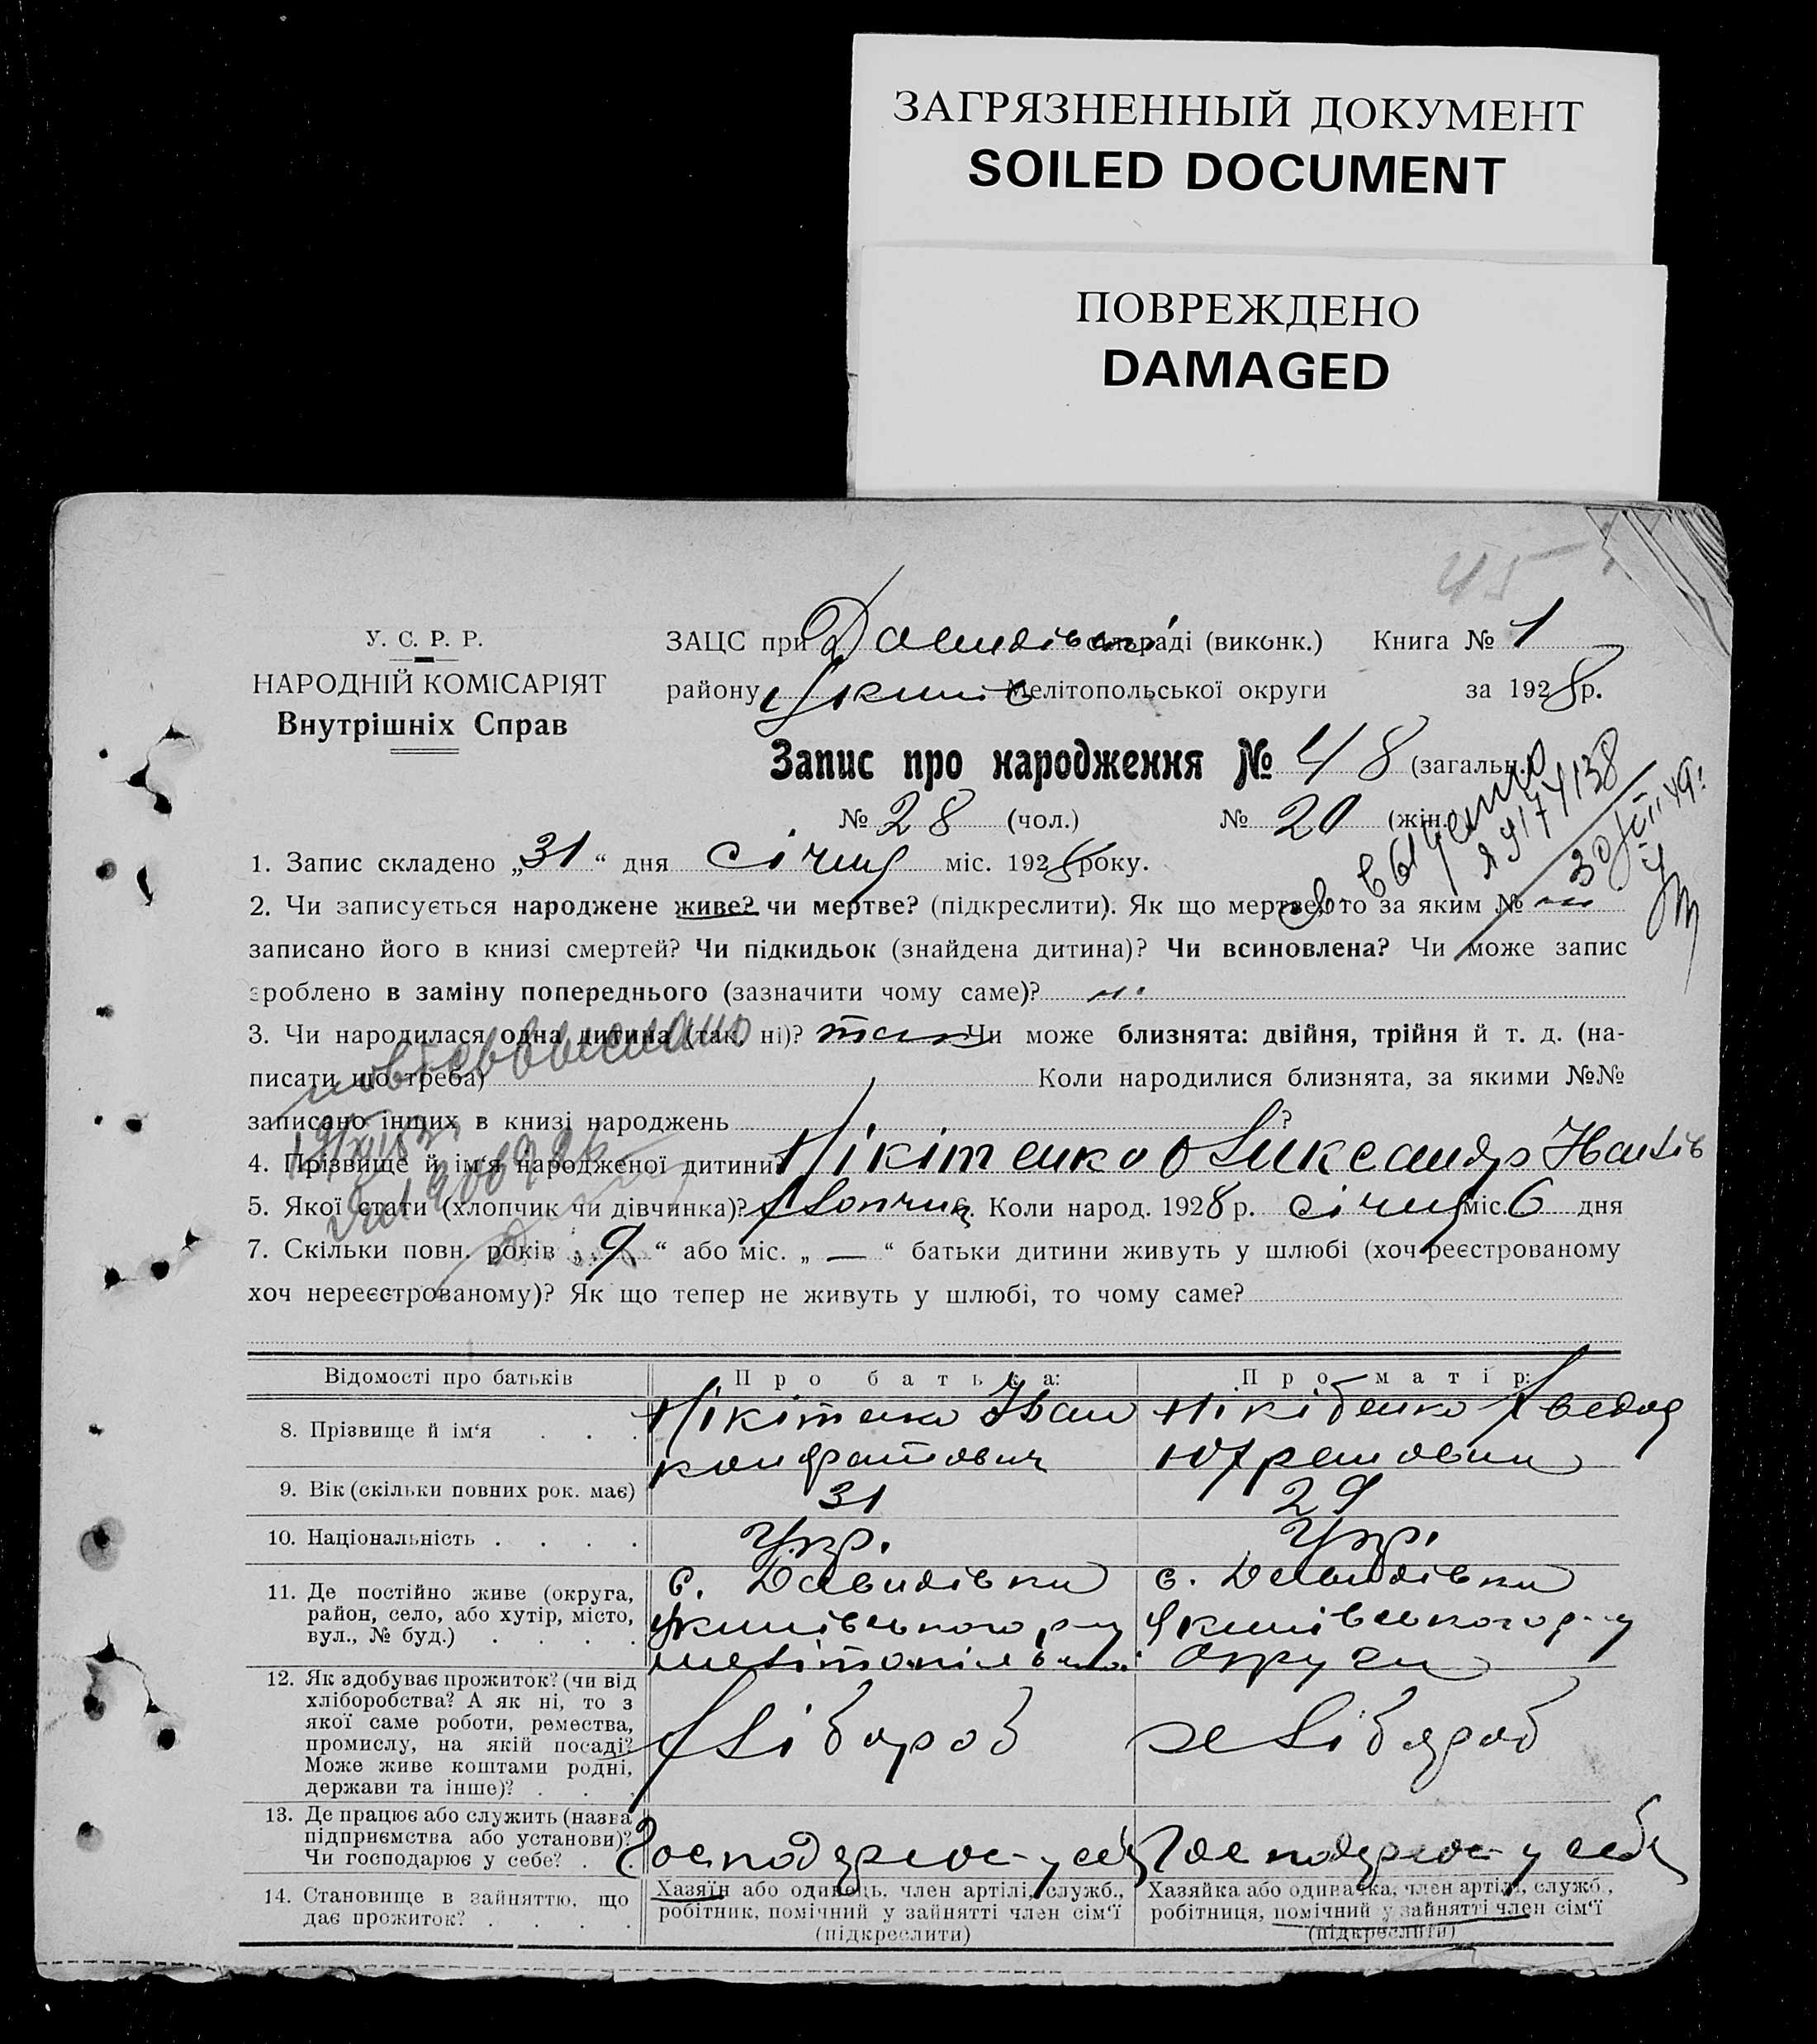 ЗАГРЯЗНЕННЫЙ ДОКУМЕНТ
SOILED DOCUMENT
ПОВРЕЖДЕНО
DAMAGED
45
У. С. Р. Р.
НАРОДНІЙ КОМІСАРІЯТ
Внутрішніх Справ
ЗАЦС при Давидівс. сільраді (виконк.) Книга № 1
району Якимів Мелітопольської округи за 1928 р.
Запис про народження № 48 (загальн.)
№ 28 (чол.) № 20 (жін.)
1. Запис складено „31“ дня січня міс. 1928 року.
2. Чи записується народжене живе? чи мертве? (підкреслити). Як що мертве, то за яким №
записано його в книзі смертей? Чи підкидьок (знайдена дитина)? Чи всиновлена? Чи може запис
зроблено в заміну попереднього (зазначити чому саме)?
3. Чи народилася одна дитина (так, ні)? так Чи може близнята: двійня, трійня й т. д. (на-
писати що треба) Коли народилися близнята, за якими №№
записано інших в книзі народжень ?
4. Прізвище й ім‘я народженої дитини? Нікітенко Олександр Іванів
5. Якої стати (хлопчик чи дівчинка)? Хлопчик 6. Коли народ. 1928 р. січня міс. 6 дня
7. Скільки повн. років „9“ або міс. „—“ батьки дитини живуть у шлюбі (хоч реєстрованому
хоч нереєстрованому)? Як що тепер не живуть у шлюбі, то чому саме?
Відомості про батьків Про батька: Про матір:
8. Прізвище й ім‘я . . . Нікітенко Іван Нікітенко
Кондратович
9. Вік (скільки повних рок. має) 31 29
10. Національність . . . . Укр. Укр.
11. Де постійно живе (округа, с. Давидівки с. Давидівки
район, село, або хутір, місто, Якимівського р-ну Якимівського р-ну
вул., № буд.) . . . . Мелітопільської Округи
12. Як здобуває прожиток? (чи від
хліборобства? А як ні, то з
якої саме роботи, ремества, Хлібороб хлібороб
промислу, на якій посаді?
Може живе коштами родні,
держави та інше)? . . .
13. Де працює або служить (назва
підприємства або установи)?
Чи господарює у себе? . . Господарює у себе Господарює у себе
14. Становище в зайняттю, що Хазяїн або одинець, член артілі, служб., Хазяйка або одиначка, член артілі, служб.,
дає прожиток? . . . . робітник, помічний у зайнятті член сім‘ї робітниця, помічний у зайнятті член сім‘ї
(підкреслити) (підкреслити)